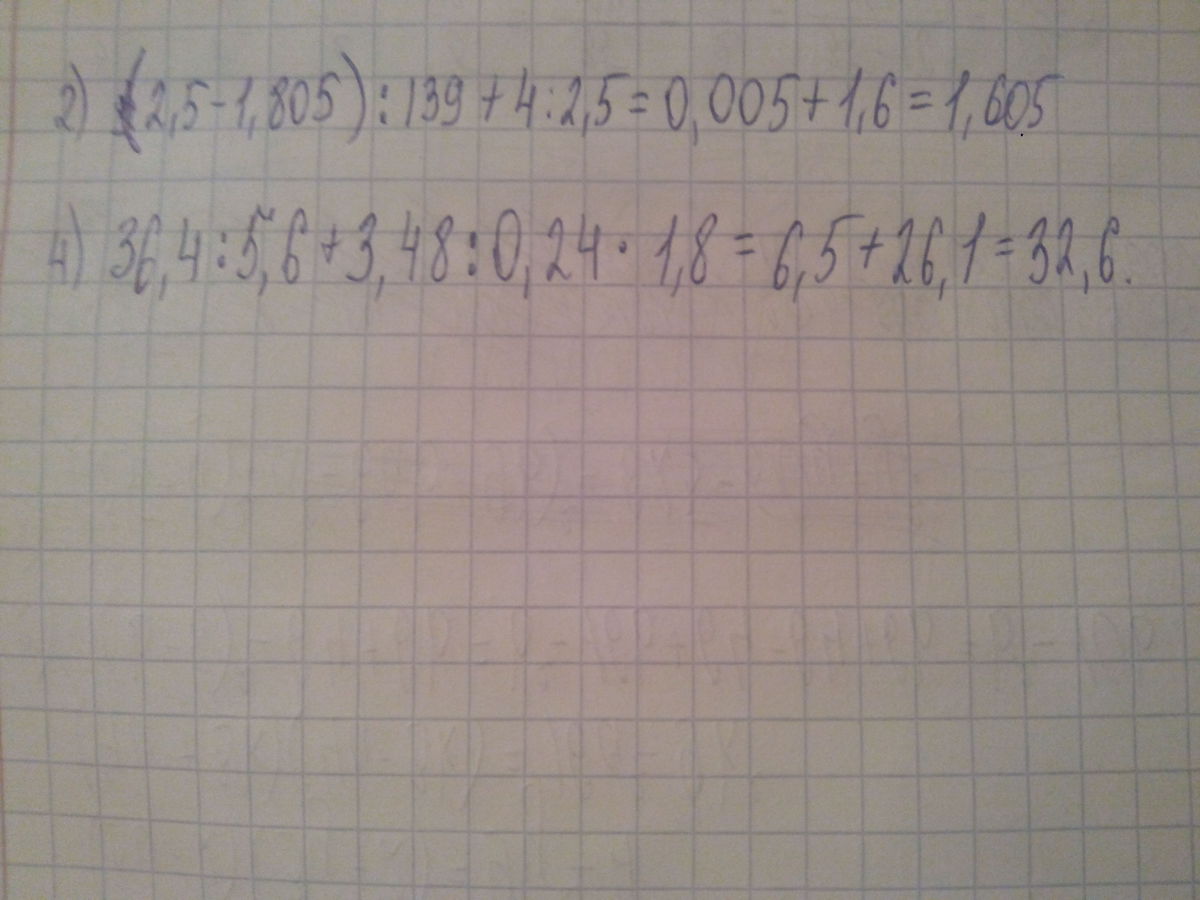 2) (2,5-1,805):139+4:2,5=0,005+1,6=1,605
4) 36,4:5,6+3,48:0,24·1,8=6,5+26,1=32,6.